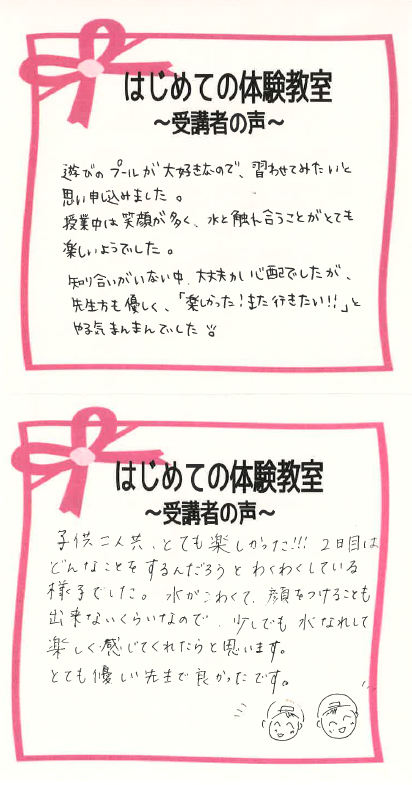 はじめての体験教室
～受講者の声～
遊びのプールが大好きなので、習わせてみたいと
思い申込みました。
授業中は笑顔が多く、水と触れ合うことがとても
楽しいようでした。
知り合いがいない中、大丈夫か心配でしたが、
先生方も優しく、「楽しかった！また行きたい!!」と
やる気まんまんでした
はじめての体験教室
～受講者の声～
子供二人共、とても楽しかった!!! 2日目は
どんなことをするんだろうとわくわくしている
様子でした。水がこわくて、顔をつけることも
出来ないくらいなので、少しでも水なれして
楽しく感じてくれたらと思います。
とても優しい先生で良かったです。